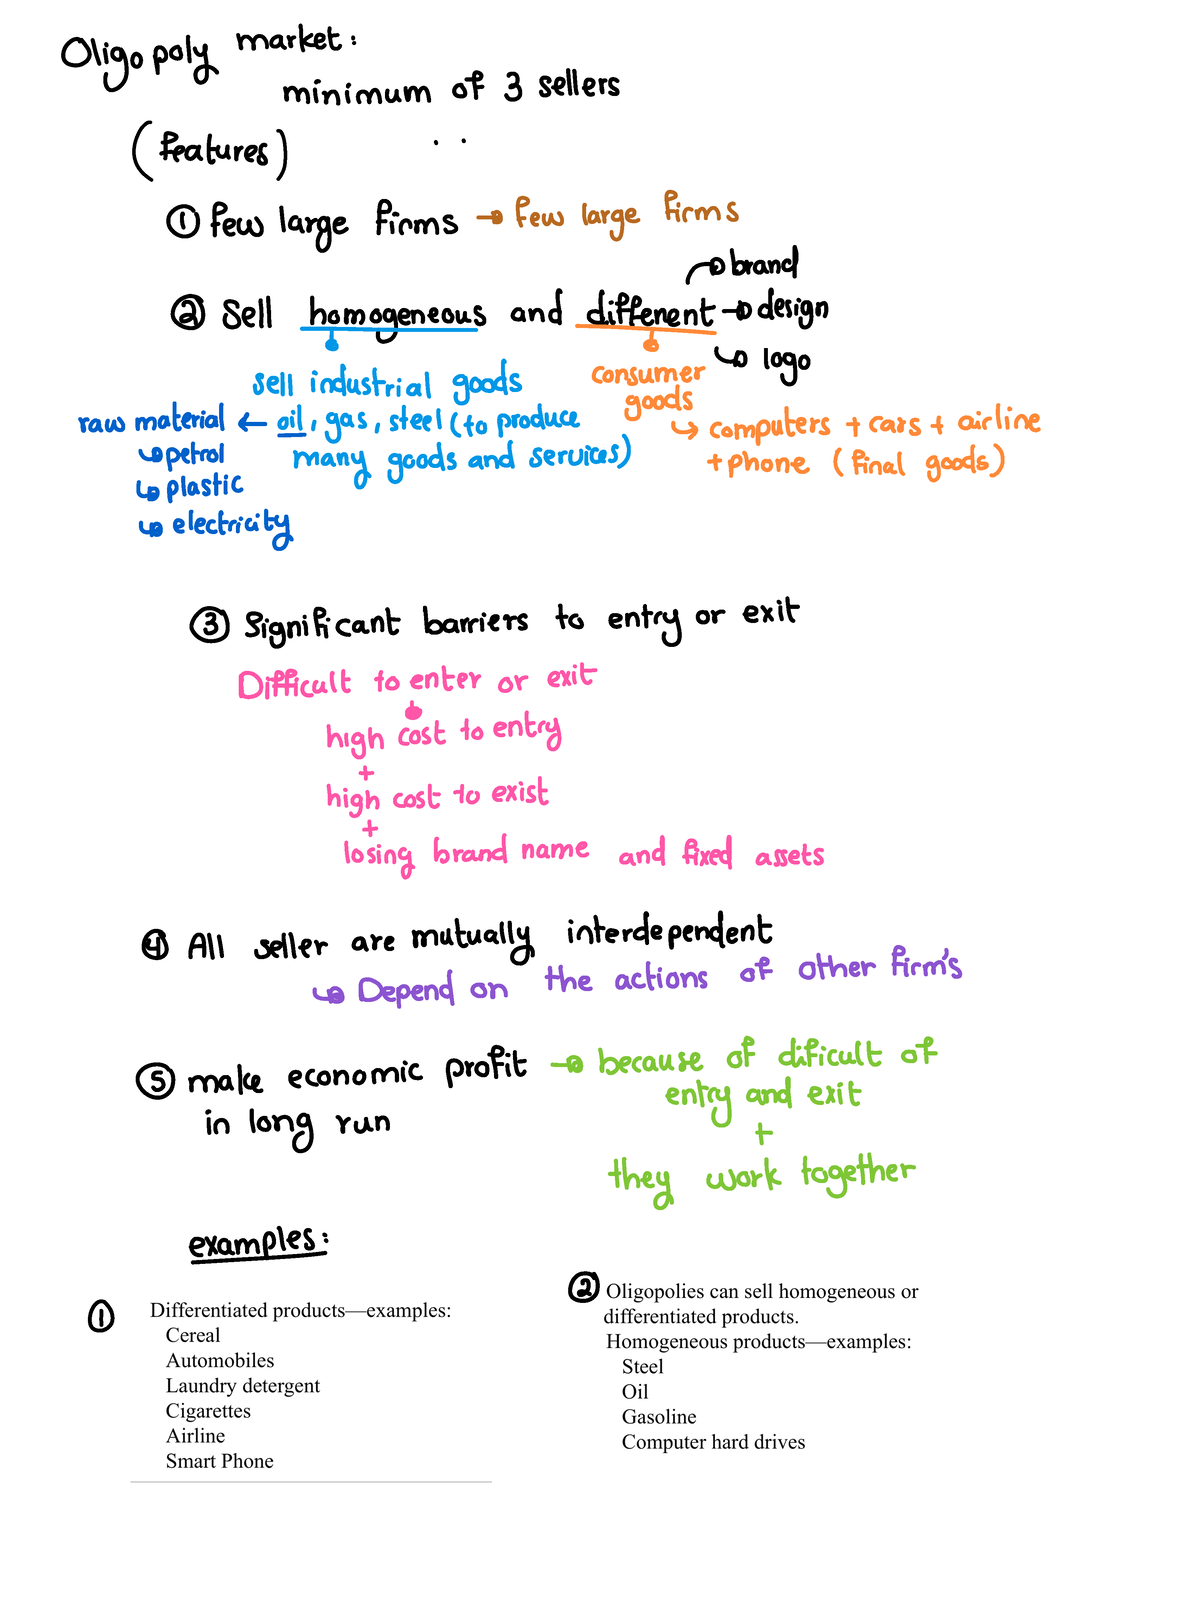 Oligopoly market:
minimum of 3 sellers
(features)
① few large firms → few large firms
→ brand
② Sell homogeneous and different → design
↳ logo
sell industrial goods
consumer goods
raw material ← oil, gas, steel (to produce
many goods and services)
↳ petrol
↳ plastic
↳ electricity
↳ computers + cars + airline
+ phone (final goods)
③ Significant barriers to entry or exit
Difficult to enter or exit
high cost to entry
+
high cost to exist
+
losing brand name and fixed assets
④ All seller are mutually interdependent
↳ Depend on the actions of other firm's
⑤ make economic profit → because of dificult of
in long run
entry and exit
+
they work together
examples:
① Differentiated products—examples:
Cereal
Automobiles
Laundry detergent
Cigarettes
Airline
Smart Phone
② Oligopolies can sell homogeneous or
differentiated products.
Homogeneous products—examples:
Steel
Oil
Gasoline
Computer hard drives